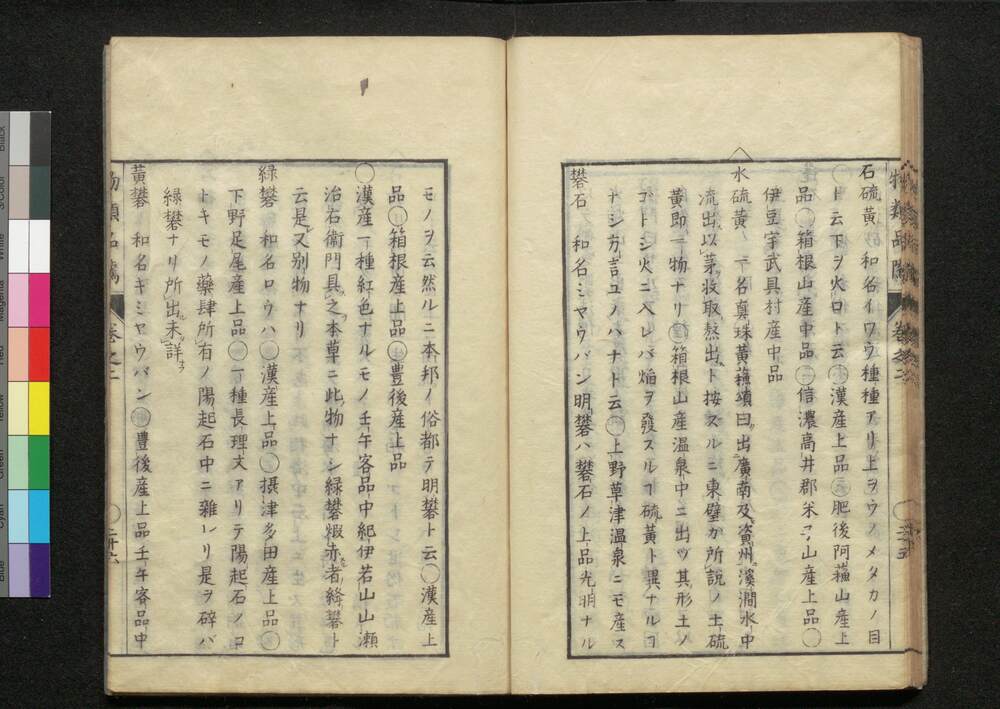 石硫黃 和名イワウ種種アリ上ヲウノメタカノ目
ト云下ヲ火口ト云 漢産上品 肥後阿蘓山産上
品 箱根山産中品 信濃高井郡米コ山産上品
伊豆宇武具村産中品
水硫黃 一名真珠黃蘓頌曰出廣南及資州溪澗水中
流出以茅收取熬出ト按スルニ東壁か所說ノ土硫
黃即一物ナリ 箱根山産温泉中ニ出ヅ其形土ノ
コトシ火ニ入レバ焔ヲ發スルヿ硫黃ト異ナルヿ
ナシ方言ユノハナト云 上野草津温泉ニモ産ス
礬石 和名ミヤウバン明礬ハ礬石ノ上品光明ナル
卷之二
モノヲ云然ルニ本邦ノ俗都テ明礬ト云 漢産上
品 箱根産上品 豊後産上品
漢産一種紅色ナルモノ壬午客品中紀伊若山山瀬
治右衛門具之本草ニ此物ナシ緑礬煅赤者絳礬ト
云是又別物ナリ
緑礬 和名ロウハ 漢産上品 摂津多田産上品
下野足尾産上品 一種長理文アリテ陽起石ノコ
トキモノ藥肆所有ノ陽起石中ニ雜レリ是ヲ碎バ
緑礬ナリ所出未詳
黃礬 和名キミヤウバン 豊後産上品壬午客品中
卷之二